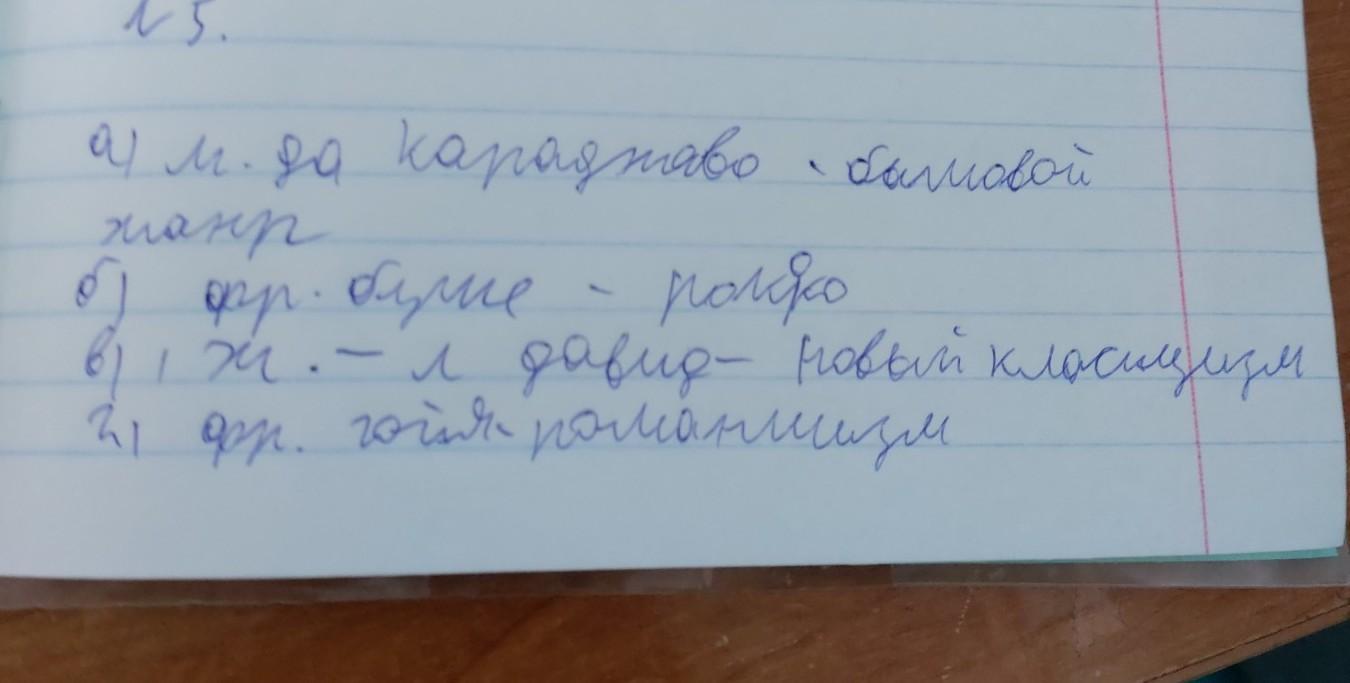 №5.
а) м. да караджаво - бытовой
жанр
б) фр. буше - рококо
в) ж. - л давид - новый класицизм
г) фр. гойя - романтизм